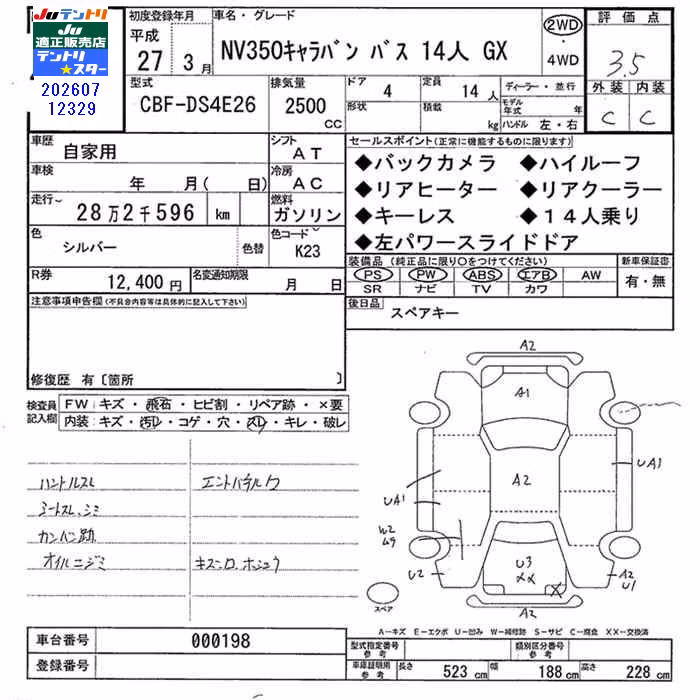 JUテントリ
JU
適正販売店
テントリ
★スター
202607
12329
初度登録年月
平成
27 3月
車名・グレード
NV350キャラバン バス 14人 GX
2WD
・
4WD
評価点
3.5
外装 内装
C C
型式
CBF-DS4E26
排気量
2500
CC
ドア 4
形状
定員 14人
積載 kg
ディーラー・並行
モデル年式 年
ハンドル 左・右
車歴 自家用
シフト AT
車検 年 月( 日)
冷房 AC
走行〜 28万2千596 km
燃料 ガソリン
色 シルバー 色替
色コード K23
R券 12,400円
名変通知期限 月 日
セールスポイント(正常に機能するものに限ります)
◆バックカメラ ◆ハイルーフ
◆リアヒーター ◆リアクーラー
◆キーレス ◆14人乗り
◆左パワースライドドア
装備品(純正品に限り○をつけてください)
PS PW ABS エアB AW
SR ナビ TV カワ
新車保証書
有・無
後日品
スペアキー
注意事項申告欄(不具合内容等は具体的に記入して下さい)
修復歴 有〔箇所 〕
検査員記入欄
FW:キズ・飛石・ヒビ割・リペア跡・×要
内装:キズ・汚レ・コゲ・穴・スレ・キレ・破レ
ハンドルスレ
シートスレ、シミ
カンバン跡
オイルニジミ
エンドパネルワ
キズ・コ、ホシュウ
A2
A1
A2
UA1
UA1
W2
U2
U3
XX
X
A2
U1
A2
スペア
A-キズ E-エクボ U-凹み W-補修跡 S-サビ C-腐食 XX-交換済
車台番号 000198
登録番号
型式指定番号 参考
類別区分番号 参考
車庫証明用 参考
長さ 523 cm 幅 188 cm 高さ 228 cm